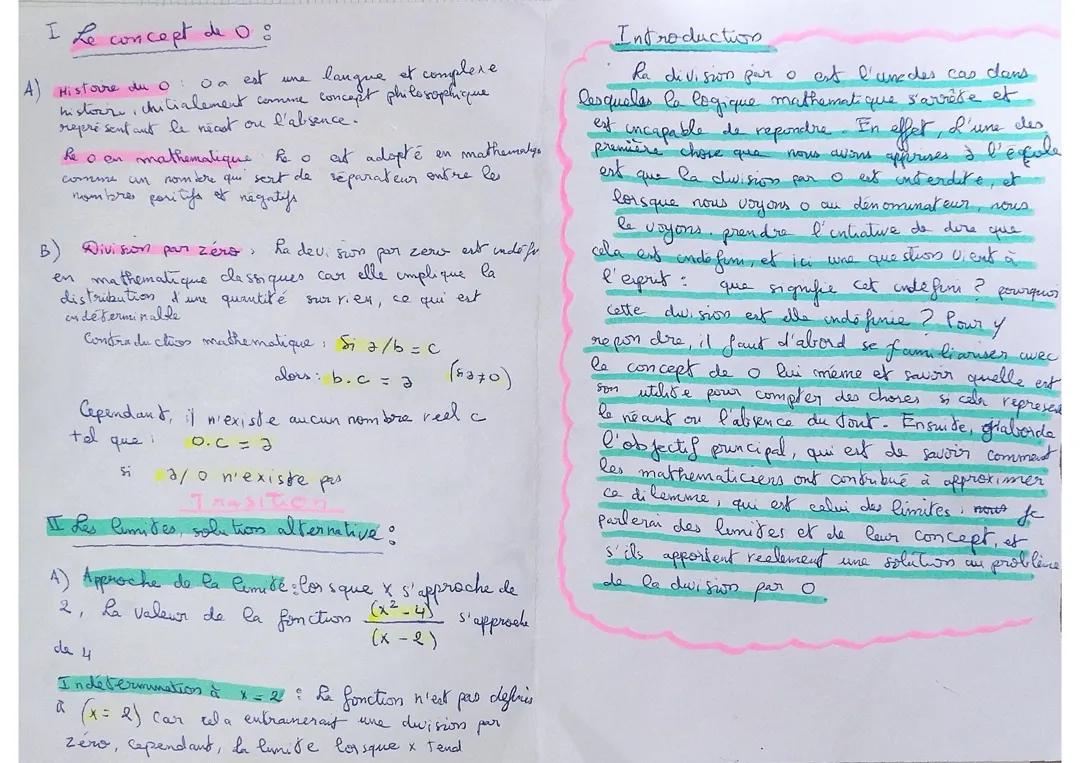 I Le concept de 0 :
A) Histoire du 0 : 0 a est une langue et complexe
histoire, initialement comme concept philosophique
représentant le néant ou l'absence.
Le 0 en mathematique : Le 0 est adopté en mathematiqe
comme un nombre qui sert de séparateur entre les
nombres positifs et négatifs
B) Division par zéro : La devision par zero est indéfi
en mathematique classiques car elle implique la
distribution d'une quantité sur rien, ce qui est
indéterminable
Contraduction mathematique : Si a/b = c
alors : b.c = a (si a≠0)
Cependant, il n'existe aucun nombre reel c
tel que : 0.c = a
si a/0 n'existe pas
Trasition
II Les limites, solution alternative :
A) Approche de la limite : lorsque x s'approche de
2, La valeur de la fonction (x² - 4) / (x - 2) s'approche
de 4
Indetermination à x = 2 : La fonction n'est pas definis
à (x = 2) car cela entrainerait une division par
zéro, cependant, la limite lorsque x tend
Introduction
La division par 0 est l'une des cas dans
lesquelas la logique mathematique s'arrête et
est incapable de repondre. En effet, l'une des
première chose que nous avons apprises à l'école
est que la division par 0 est interdite, et
lorsque nous voyons 0 au dénominateur, nous
le voyons prendre l'initiative de dire que
cela est indéfini, et ici une question vient à
l'esprit : que signifie cet indéfini ? pourquoi
cette division est elle indéfinie ? Pour y
repondre, il faut d'abord se familiariser avec
le concept de 0 lui même et savoir quelle est
son utilité pour compter des choses si cela represente
le néant ou l'absence du tout. Ensuite, j'aborde
l'objectif principal, qui est de savoir comment
les mathematiciens ont contribué à approximer
ce dilemme, qui est celui des limites, nous je
parlerai des limites et de leur concept, et
s'ils apportent reelement une solution au problème
de la division par 0.